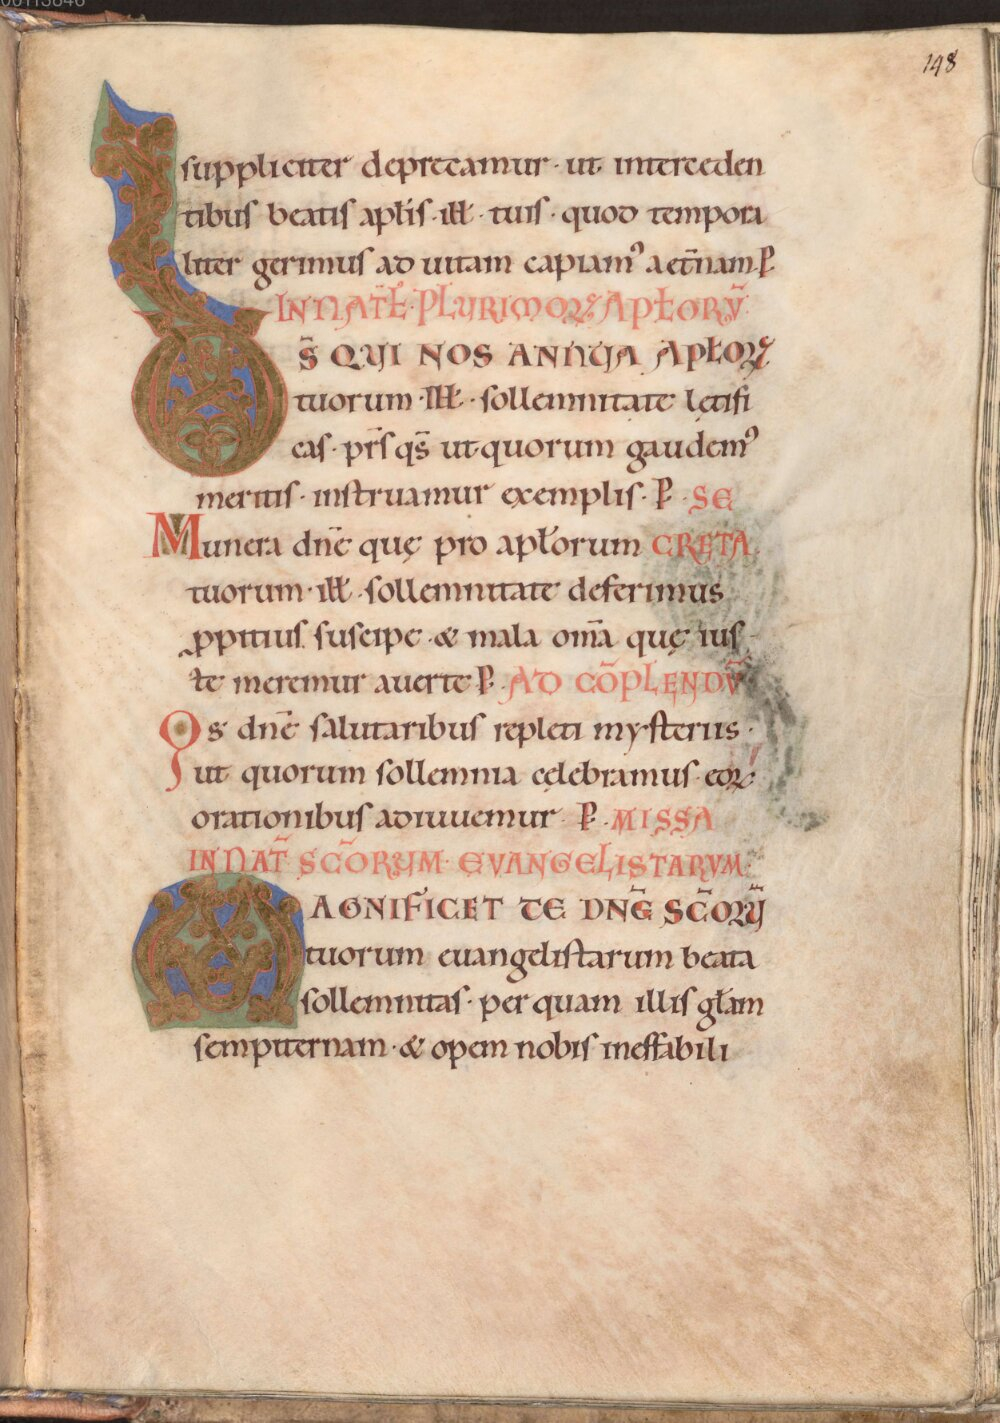 148
suppliciter deprecamur · ut interceden
tibus beatis apłis · ill̵ · tuis · quod tempora
liter gerimus ad uitam capiamꝰ aet̄nam P̵
IN NAT̄L̵ · PLURIMOꝜ APŁORŪ
D̄S QUI NOS ANNUA APŁOꝜ
tuorum · Ill̵ · sollemnitate lętifi
cas · pr̄s qs̄ ut quorum gaudemꝰ
meritis · instruamur exemplis · P̵ · SE
Munera dn̄e quę pro apłorum CRETA
tuorum · ill̵ · sollemnitate deferimus
ꝓpitius suscipe · & mala om̄a quę ius
te meremur auerte P̵ · AD CŌPLENDV̄
Qs dn̄e salutaribus repleti mysteriis ·
ut quorum sollemnia celebramus · eoꝝ
orationibus adiuuemur P̵ · MISSA
IN NAT̄ SC̄ORUM · EVANGELISTARVM ·
MAGNIFICET TE DN̄E SC̄OꝜŪ
tuorum euangelistarum beata
sollemnitas · per quam illis głam
sempiternam · & opem nobis ineffabili